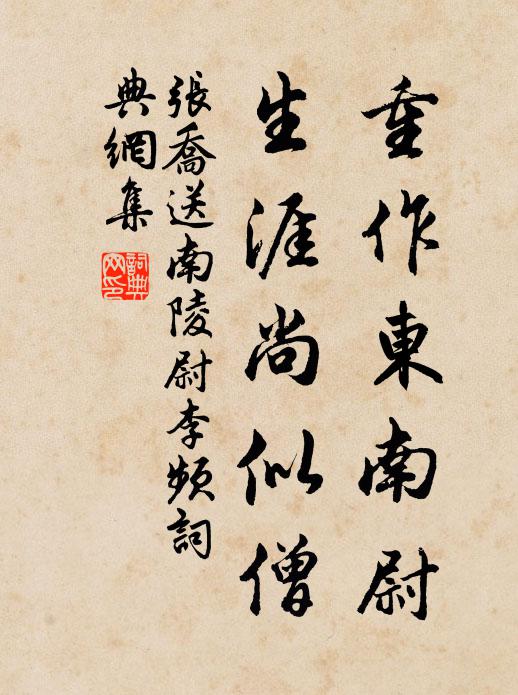 重作東南尉
生涯尚似僧
張喬送南陵尉李頻詞
典網集
詞典網印